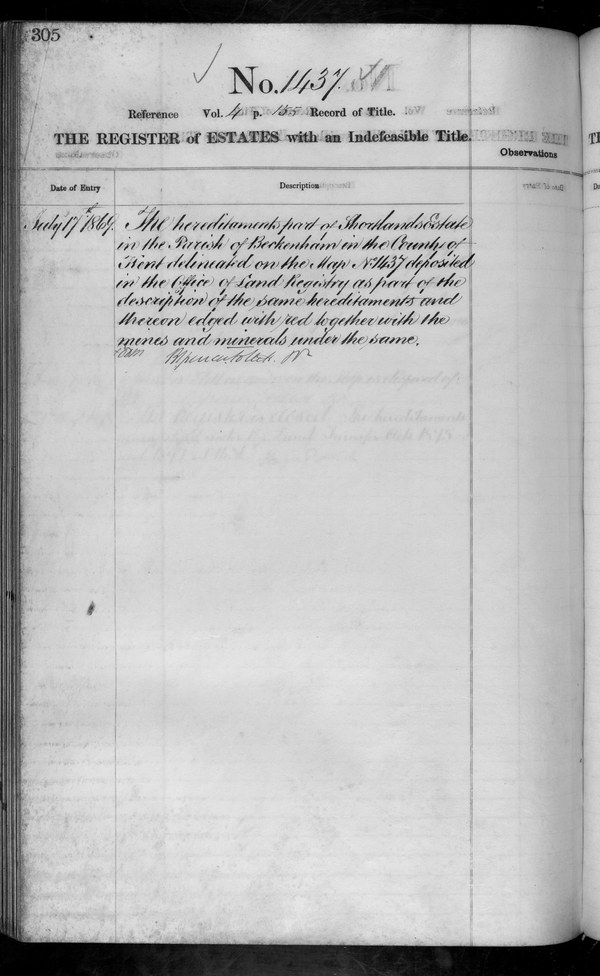 305
No. 1437.
Reference Vol. 4 p. 155 Record of Title.
THE REGISTER of ESTATES with an Indefeasible Title.
Observations
Date of Entry
Description
July 17th 1869. The hereditaments part of Shortlands Estate
in the Parish of Beckenham in the County of
Kent delineated on the Map No 1437 deposited
in the Office of Land Registry as part of the
description of the same hereditaments and
thereon edged with red together with the
mines and minerals under the same.